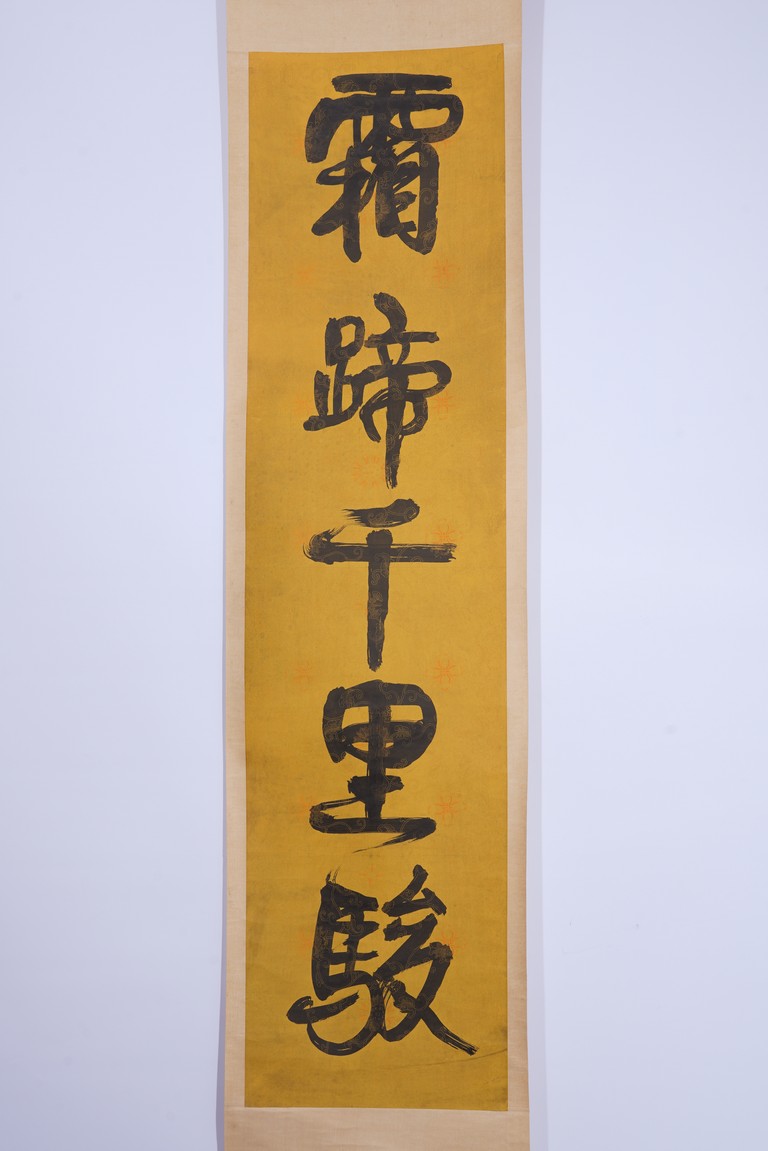 霜蹄千里駿